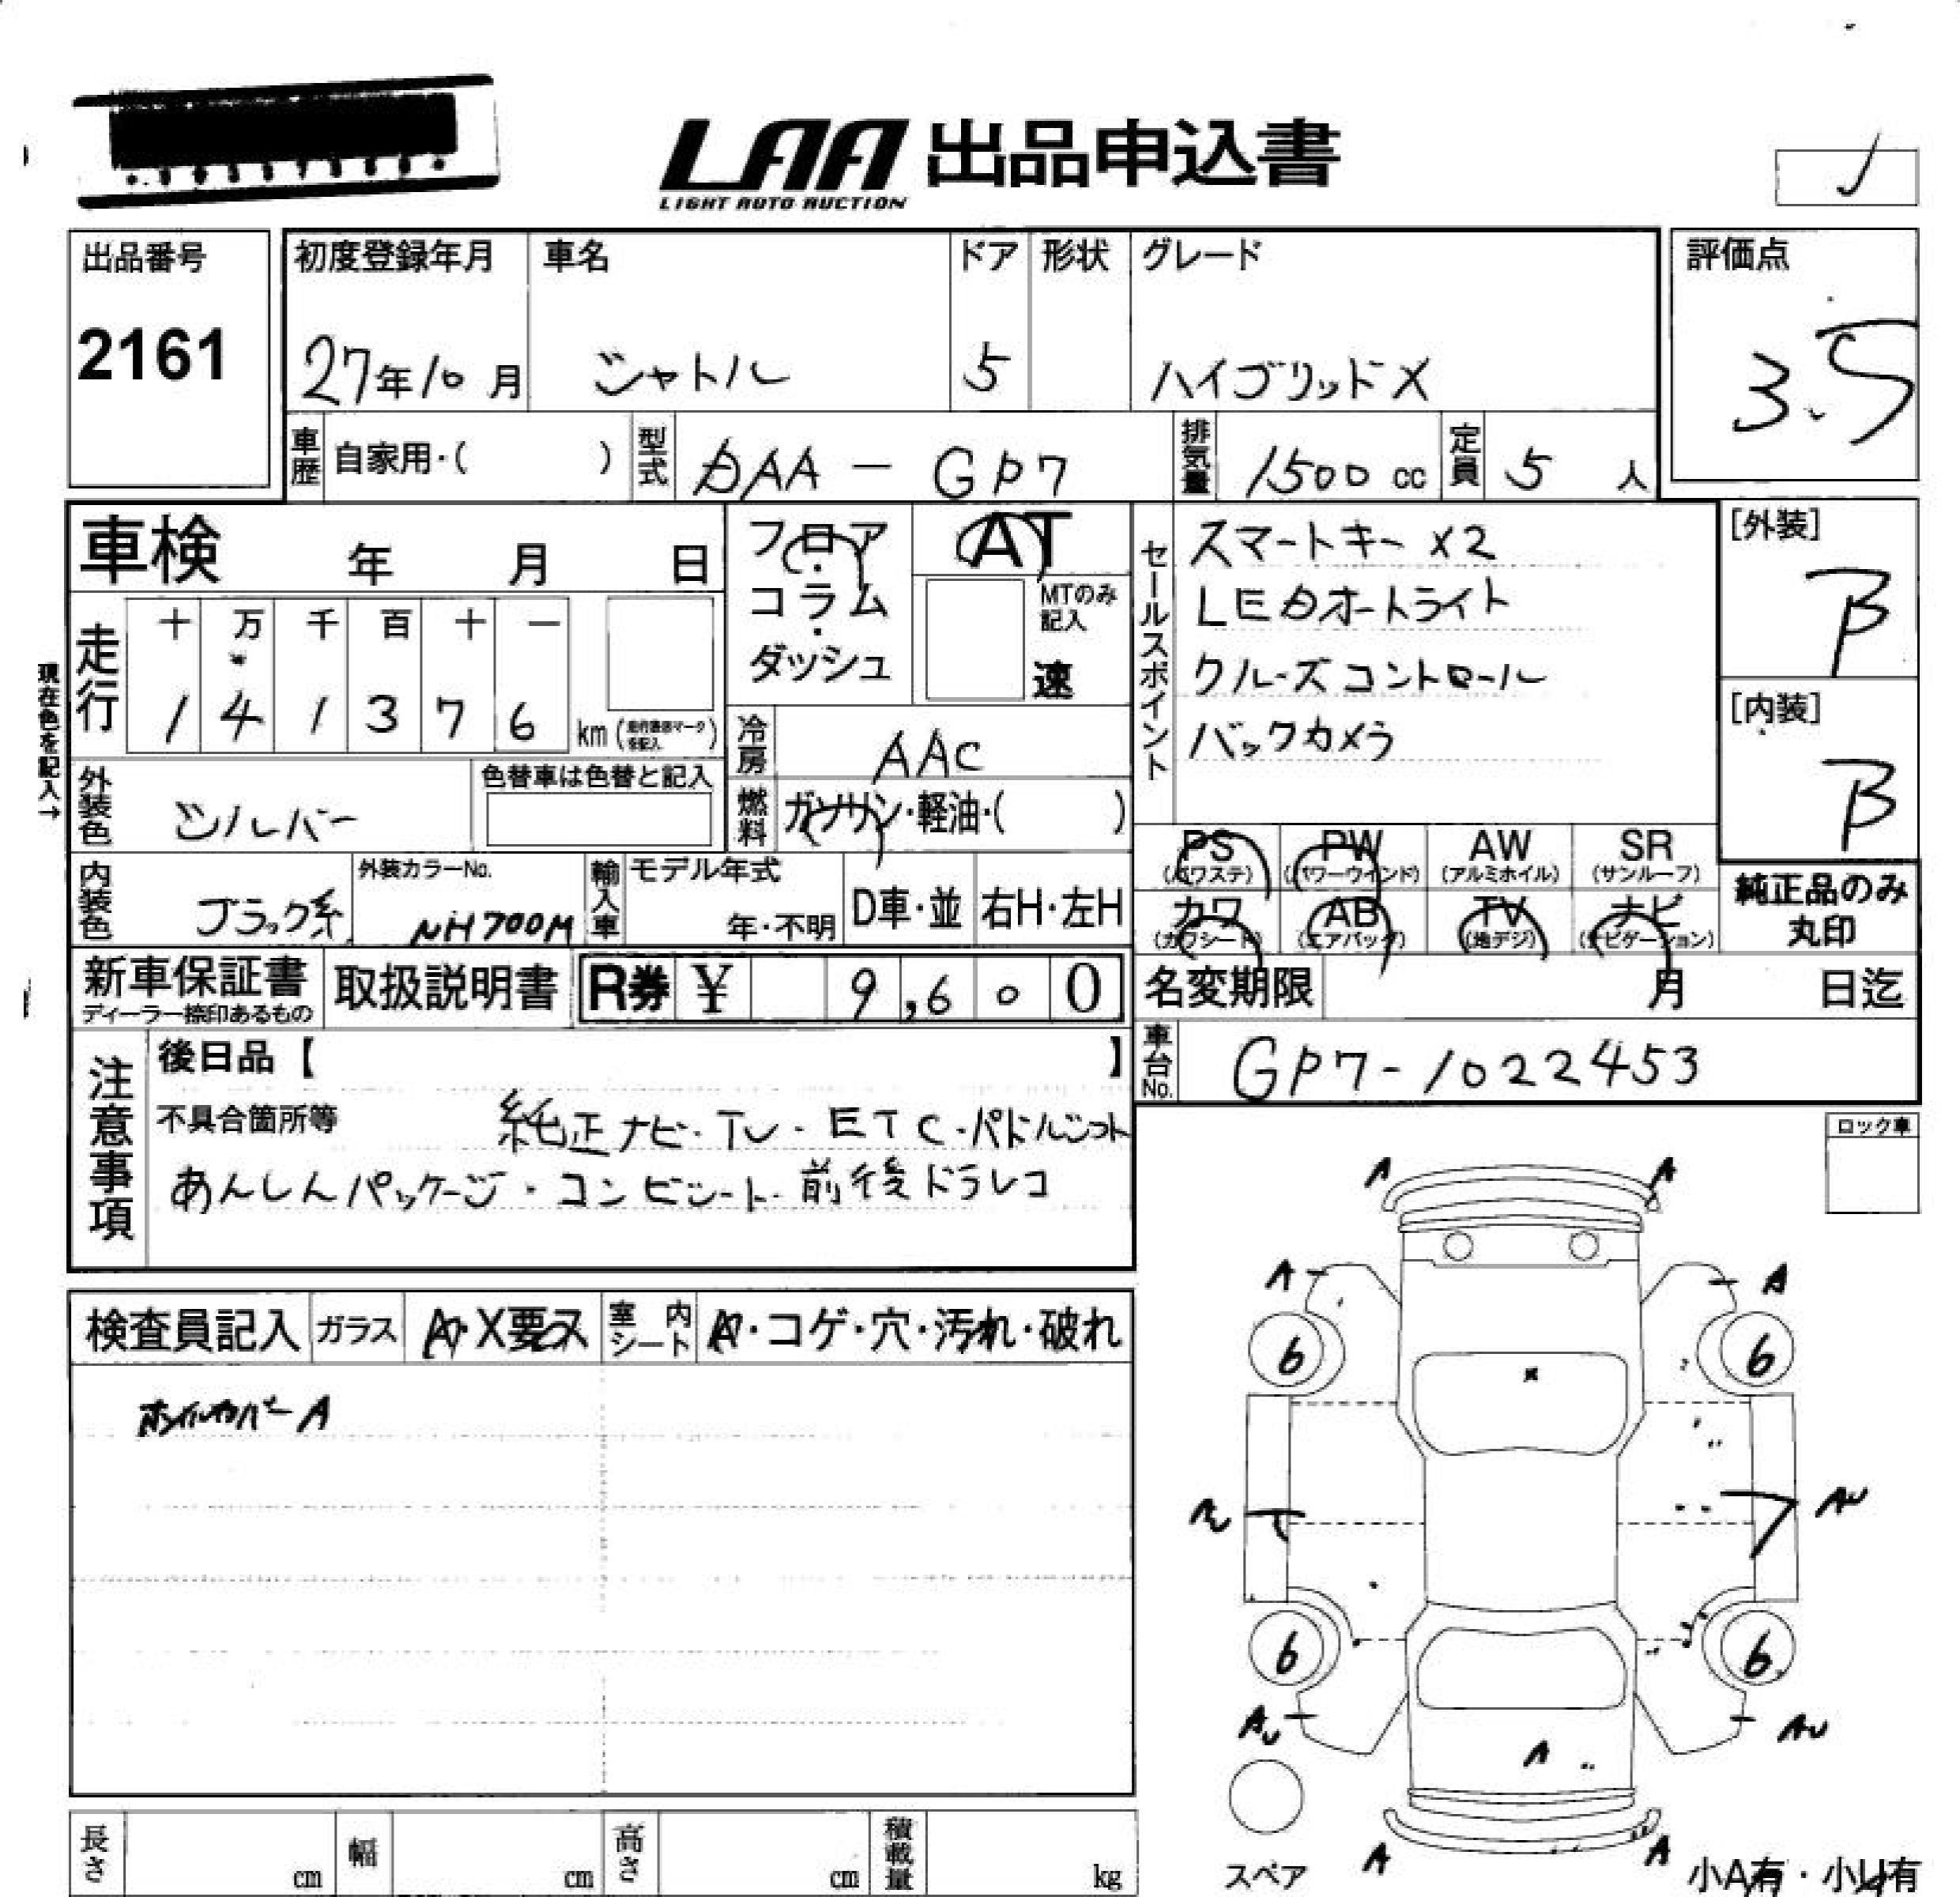 LAA 出品申込書
LIGHT AUTO AUCTION
出品番号
2161
初度登録年月 車名 ドア 形状 グレード
27年10月 シャトル 5 ハイブリッドX
評価点
3.5
車歴 自家用・( ) 型式 DAA-GP7 排気量 1500 cc 定員 5 人
車検 年 月 日
フロア・コラム・ダッシュ
AT
MTのみ記入
速
セールスポイント
スマートキー×2
LEDオートライト
クルーズコントロール
バックカメラ
[外装]
B
[内装]
B
現在色を記入→
走行 十 万 千 百 十 一
1 4 1 3 7 6 km
冷房 AAC
外装色 シルバー
色替車は色替と記入
燃料 ガソリン・軽油・( )
内装色 ブラック系
外装カラーNo. NH700M
輸入車 モデル年式 年・不明 D車・並 右H・左H
PS (パワステ) PW (パワーウインド) AW (アルミホイル) SR (サンルーフ)
カワ (カワシート) AB (エアバッグ) TV (地デジ) ナビ (ナビゲーション)
純正品のみ丸印
新車保証書 ディーラー捺印あるもの 取扱説明書 R券 ¥ 9,600
名変期限 月 日迄
車台No. GP7-1022453
注意事項
後日品【 】
不具合箇所等 純正ナビ・TV・ETC・パドルシフト
あんしんパッケージ・コンビシート・前後ドラレコ
ロック車
検査員記入 ガラス A・X要ス 室内シート A・コゲ・穴・汚れ・破れ
ホイルカバーA
A A
A A
6 6
X
AU
6 6
AU AU
A
A A
スペア
小A有・小U有
長さ cm 幅 cm 高さ cm 積載量 kg